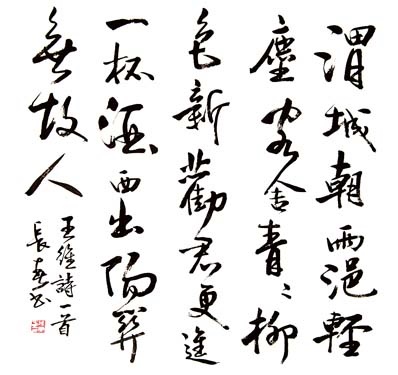 渭城朝雨浥輕
塵客舍青〻柳
色新勸君更進
一杯酒西出陽關
無故人
王維詩一首
長春書